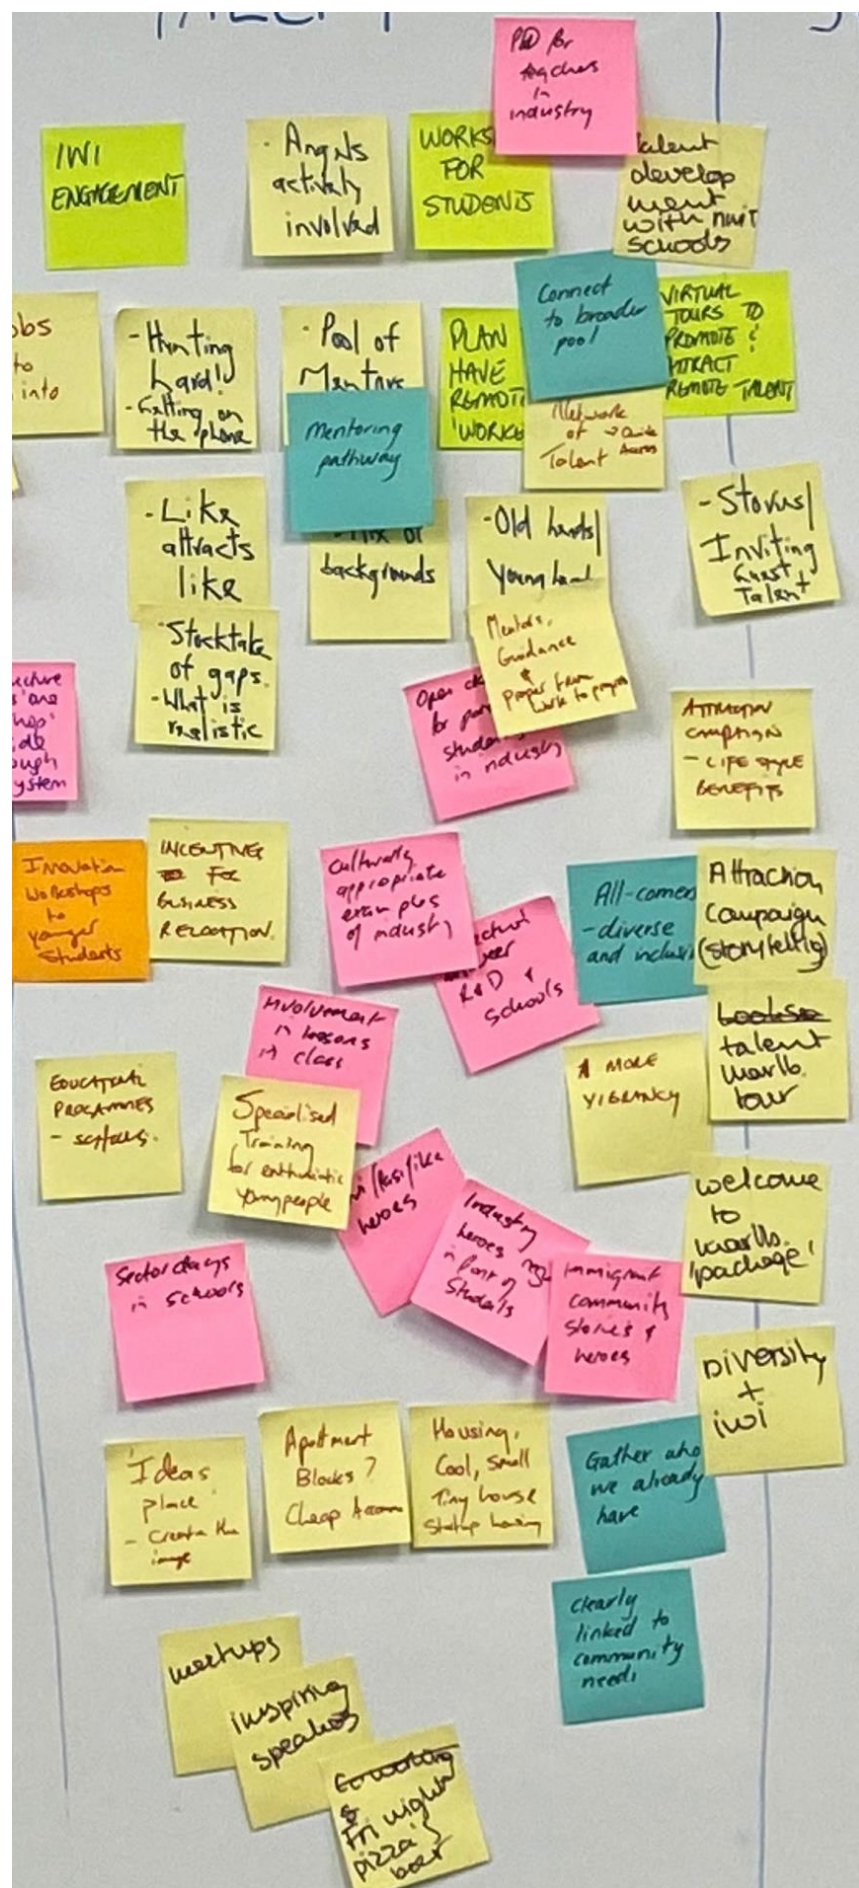 TALENT
PD for
teachers
in
industry
IWI
ENGAGEMENT
· Angels
actively
involved
WORKS
FOR
STUDENTS
talent
develop
ment
with NMIT
schools
obs
to
into
- Hunting
hard!
- Getting on
the phone
· Pool of
Mentors
Mentoring
pathway
PLAN
HAVE
REMOTE
'WORKE
Connect
to broader
pool
Network
of → Quick
Talent Access
VIRTUAL
TOURS TO
PROMOTE &
ATTRACT
REMOTE TALENT
- Like
attracts
like
- Mix of
backgrounds
- Old heads/
Young head
- Stories/
Inviting
Guest
Talent
· Stocktake
of gaps.
- What is
realistic
Mentors,
Guidance
&
Proper from
work to progress
Open
for par
student
in industry
ucture
one
hop'
ide
ough
ystem
ATTRACTION
CAMPAIGN
- LIFE STYLE
BENEFITS
Innovation
Workshops
to
younger
Students
INCENTIVES
FOR
BUSINESS
RELOCATION.
Culturally
appropriate
examples
of industry
R&D &
Schools
All-comers
- diverse
and inclusi
Attraction
Campaign
(storytelling)
Involvement
in lessons
in class
talent
marlb.
tour
EDUCATION
PROGRAMMES
- SCHOOLS.
Specialised
Training
for enthusiastic
young people
MORE
VIBRANCY
/Pasifika
heroes
Industry
heroes
in front of
Students
Immigrant
community
stories &
heroes
welcome
to
marlb.
'package'
Sector days
in schools
Diversity
+
iwi
'Ideas
place'
- Create the
image
Apartment
Blocks?
Cheap Accom
Housing,
Cool, small
Tiny house
Startup housing
Gather who
we already
have
Clearly
linked to
community
needs
meetups
inspiring
speakers
Co-working
&
Fri night
pizza &
beer